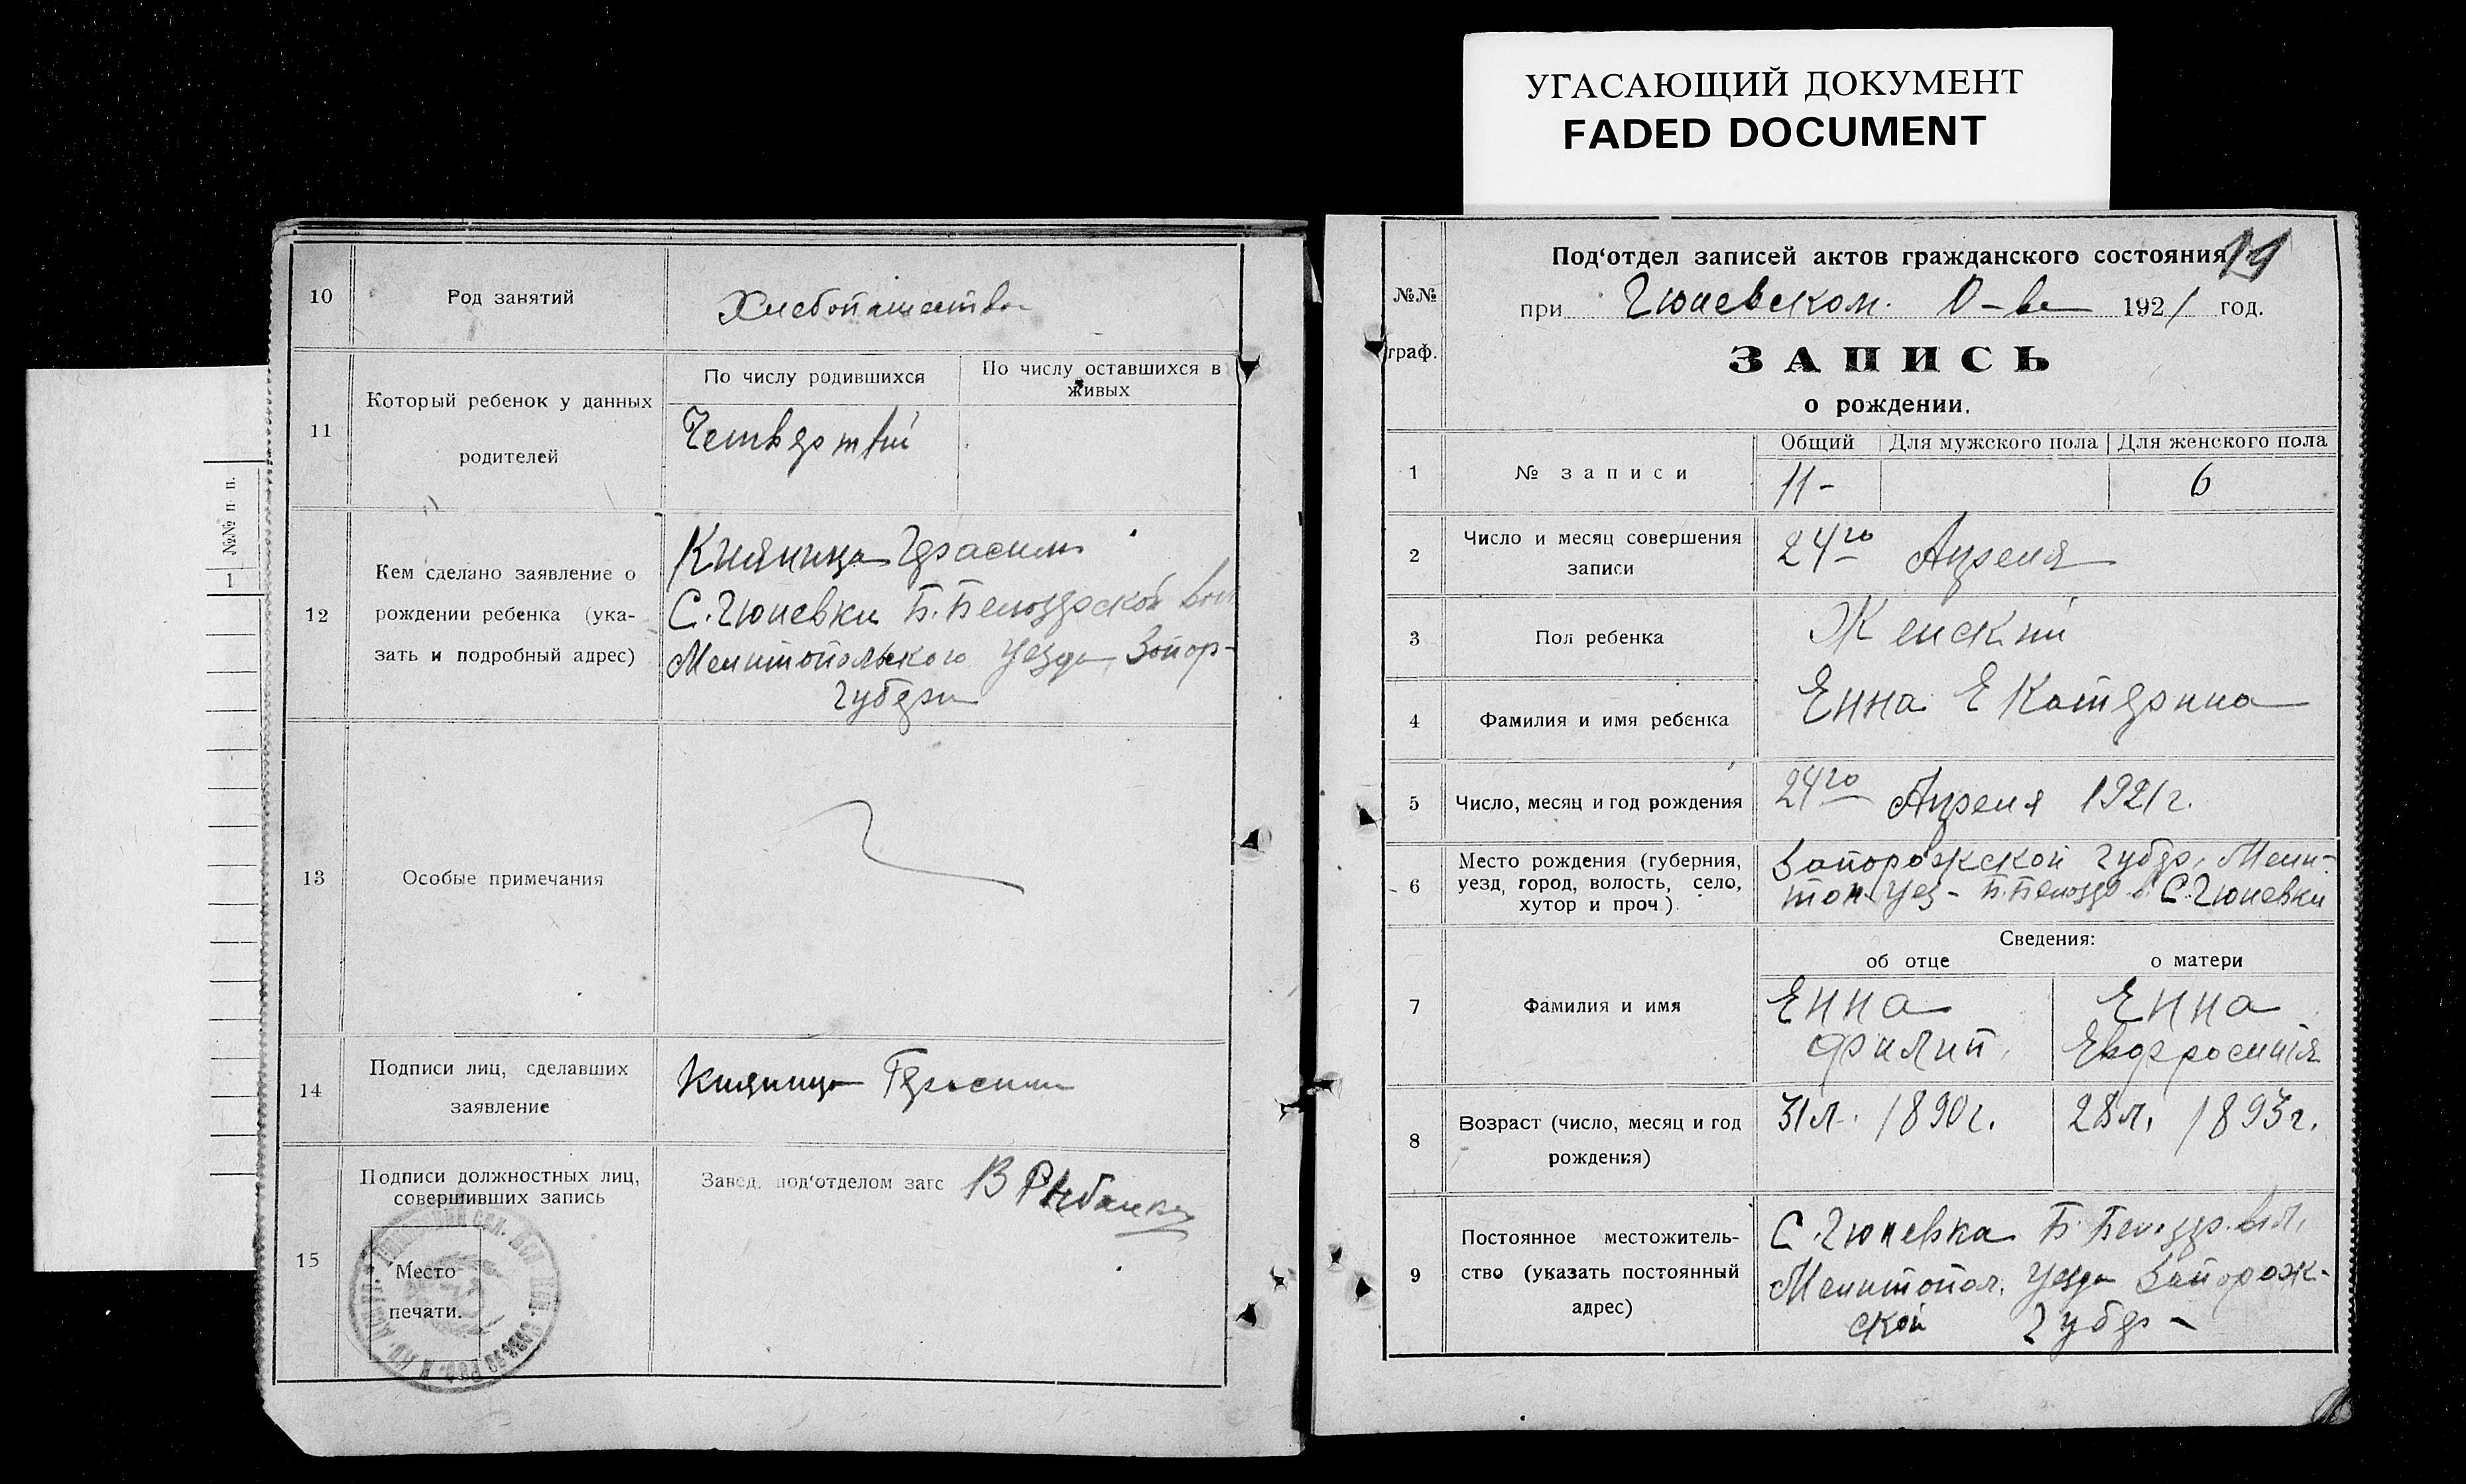 УГАСАЮЩИЙ ДОКУМЕНТ
FADED DOCUMENT
№№ п п.
1
10 Род занятий Хлебопашество
11 Который ребенок у данных родителей
По числу родившихся
По числу оставшихся в живых
Четвертый
12 Кем сделано заявление о
рождении ребенка (ука-
зать и подробный адрес)
Кияница Герасим
С. Гюневки Б. Белозерской вол
Мелитопольского уезда, Запор-
губерн
13 Особые примечания
14 Подписи лиц, сделавших
заявление
Кияница Герасим
15 Подписи должностных лиц,
совершивших запись
Завед. под‘отделом загс
Место
печати.
№№
граф.
Под‘отдел записей актов гражданского состояния
при Гюневском О-ве 1921 год.
ЗАПИСЬ
о рождении.
1 № записи
Общий Для мужского пола Для женского пола
11- 6
2 Число и месяц совершения
записи
24го Апреля
3 Пол ребенка Женский
4 Фамилия и имя ребенка Енна Екатерина
5 Число, месяц и год рождения 24го Апреля 1921г.
6 Место рождения (губерния,
уезд, город, волость, село,
хутор и проч.).
Запорожской губер. Мели-
топ. уез- Б. Белозер в. С. Гюневки
Сведения:
об отце о матери
7 Фамилия и имя
Енна Енна
Филип Евдросиния
8 Возраст (число, месяц и год
рождения)
31л. 1890г. 28л. 1893г.
9 Постоянное местожитель-
ство (указать постоянный
адрес)
С. Гюневка Б. Белозер. вол.
Мелитопол. уезда Запорож-
ской губер-